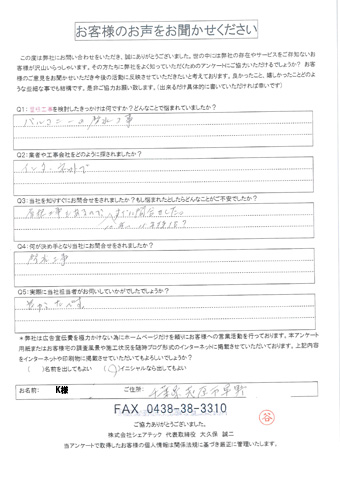 お客様のお声をお聞かせください
この度は弊社にお問い合わせをいただき、誠にありがとうございました。世の中には弊社の存在やサービスをご存知ないお
客様が沢山いらっしゃいます。その方たちに弊社をよく知っていただくためのアンケートにご協力いただけるでしょうか? お客
様のご意見をお聞かせいただき今後の活動に反映させていただきたいと考えております。良かったこと、嬉しかったことどのよ
うな些細な事でも結構です。是非ご協力お願い致します。(出来るだけ具体的に書いていただければ幸いです)
Q1:塗装工事を検討したきっかけは何ですか?どんなことで悩まれていましたか?
バルコニーの防水工事
Q2:業者や工事会社をどのように探されましたか?
インターネットで
Q3:当社を知りすぐにお問合せをされましたか?もし悩まれたとしたらどんなことがご不安でしたか?
Q4:何が決め手となり当社にお問合せをされましたか?
防水工事
Q5:実際に当社担当者がお伺いしていかがでしたでしょうか?
*弊社は広告宣伝費を極力かけない為にホームページだけを頼りにお客様への営業活動を行っております。本アンケート
用紙またはお客様宅の調査風景や施工状況を随時ブログ形式のインターネットに掲載させていただいております。上記内容
をインターネットや印刷物に掲載させていただいてもよろしいでしょうか?
( )名前を出してもよい ( )イニシャルなら出してもよい
お名前: K様 ご住所: 千葉県
FAX 0438-38-3310
ご協力ありがとうございました。
株式会社シェアテック 代表取締役 大久保 誠二
当アンケートで取得したお客様の個人情報は関係法規に基づき厳正に管理いたします。